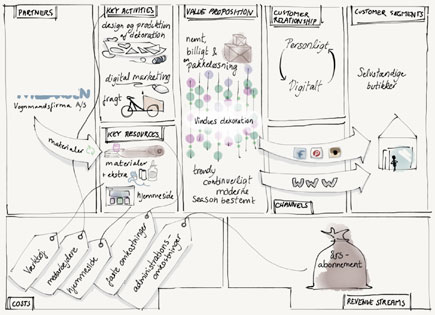 PARTNERS
Vognmandsfirma A/S
materialer
KEY ACTIVITIES
design og produktion
af dekoration
digital marketing
fragt
KEY RESOURCES
materialer
+ ekstra
hjemmeside
VALUE PROPOSITION
nemt,
billigt &
pakkeløsning
Vindues dekoration
trendy
continuerligt
moderne
season bestemt
CUSTOMER
RELATIONSHIP
Personligt
Digitalt
WWW
CHANNELS
CUSTOMER SEGMENTS
Selvstændige
butikker
Værktøj
medarbejdere
hjemmeside
faste omkostninger
administrations-
omkostninger
COSTS
års-
abonnement
REVENUE STREAMS